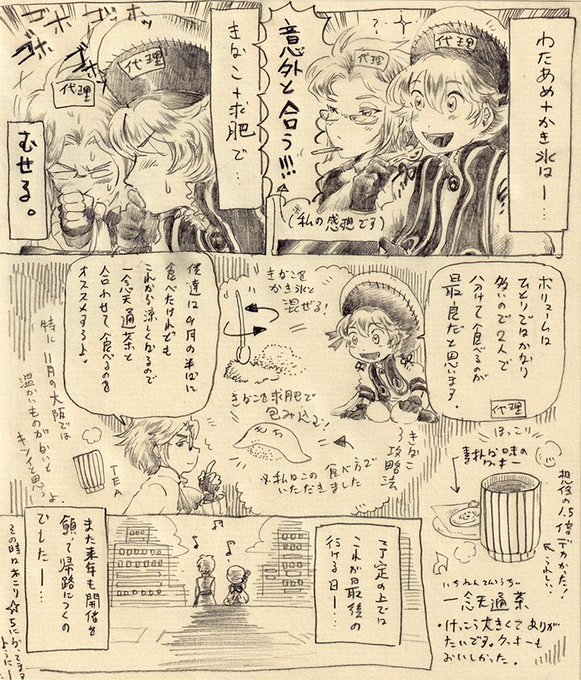 わたあめ+かき氷はー…
代理
代理
意外と合う!!!
(※私の感想です)
きなこ+求肥で…
代理
代理
ゴホ
ゴホ
ゴホッ
むせる。
ボリュームは
ひとりではかなり
多いので2人で
分けて食べるのが
最良だと思います。
代理
きなこを
かき氷と
混ぜる!
きなこを求肥で
包み込む!
きなこ
攻略法
※私はこの
食べ方で
いただきました
僕達は9月の半ばに
食べたけれども
これから涼しくなるので
一念天通茶と
合わせて食べるのを
オススメするよ。
特に11月の大阪では
温かいものがないと
キツイと思うよ。
TEA
ほっこり
素朴な味の
クッキー
想像の1.5倍デカかった!
うれしい
いちねんてんつうちゃ
一念天通茶
・けっこう大きくてあり
がたいです。クッキーも
おいしかった。
予定の上では
これが最後の
行ける日ー…
また来年も開催を
願って帰路につくの
でしたー…